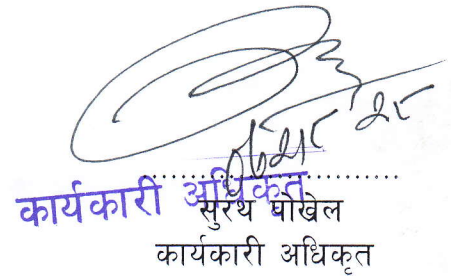 कार्यकारी अधिकृत
सुरथ पोखेल
कार्यकारी अधिकृत